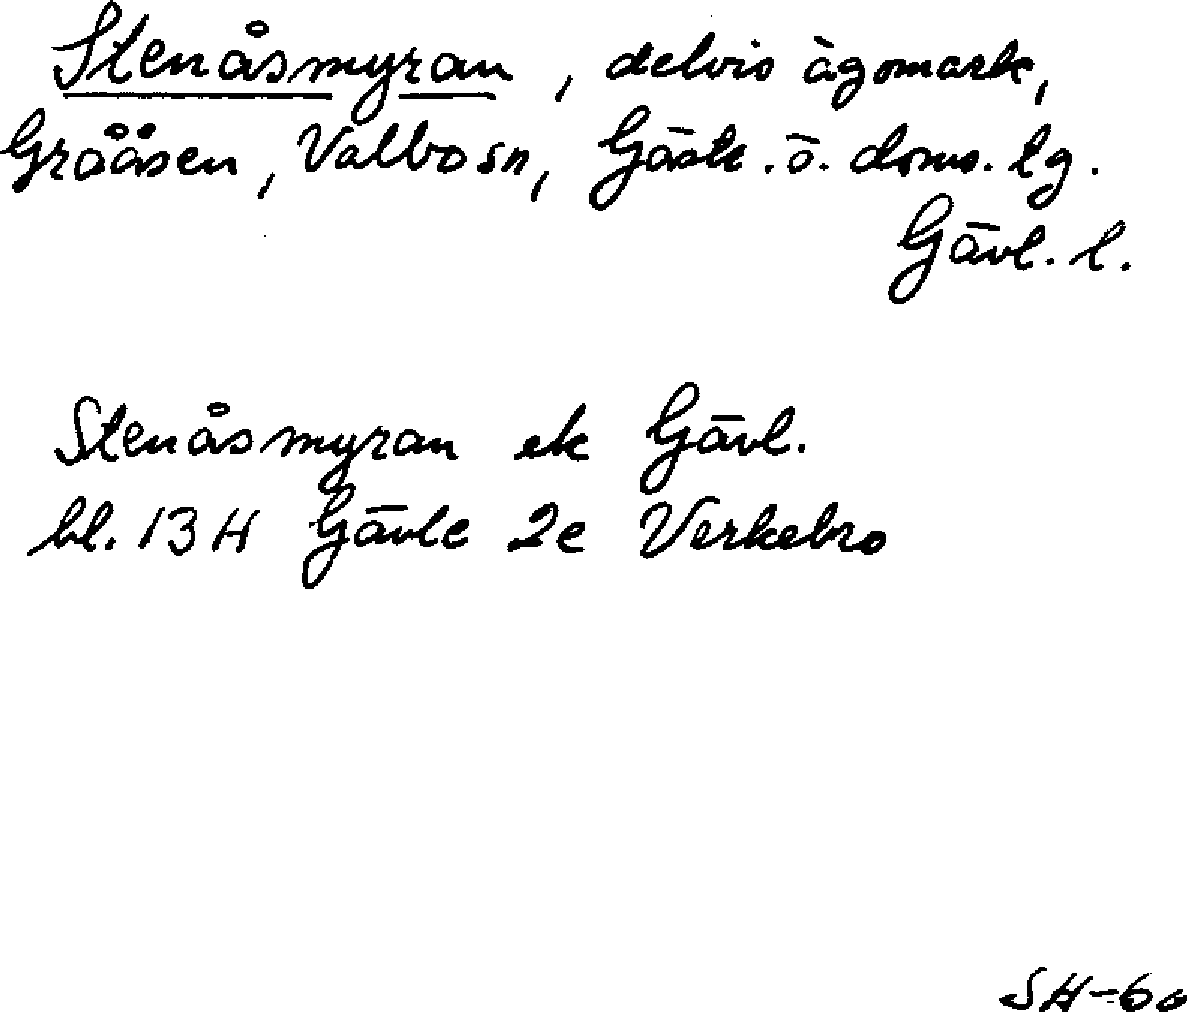 Stenåsmyran, delvis ägomark,
Grååsen, Valbo sn, Gästr. ö. doms. tg.
Gävl. l.
Stenåsmyran ek Gävl.
bl. 13 H Gävle 2e Verkebro
SH-60